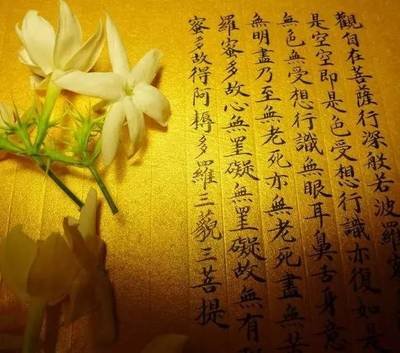 觀自在菩薩行深般若波羅
是空空即是色受想行識亦復如是
無色無受想行識無眼耳鼻舌身意
無明盡乃至無老死亦無老死盡無苦
羅蜜多故心無罣礙無罣礙故無有
蜜多故得阿耨多羅三藐三菩提